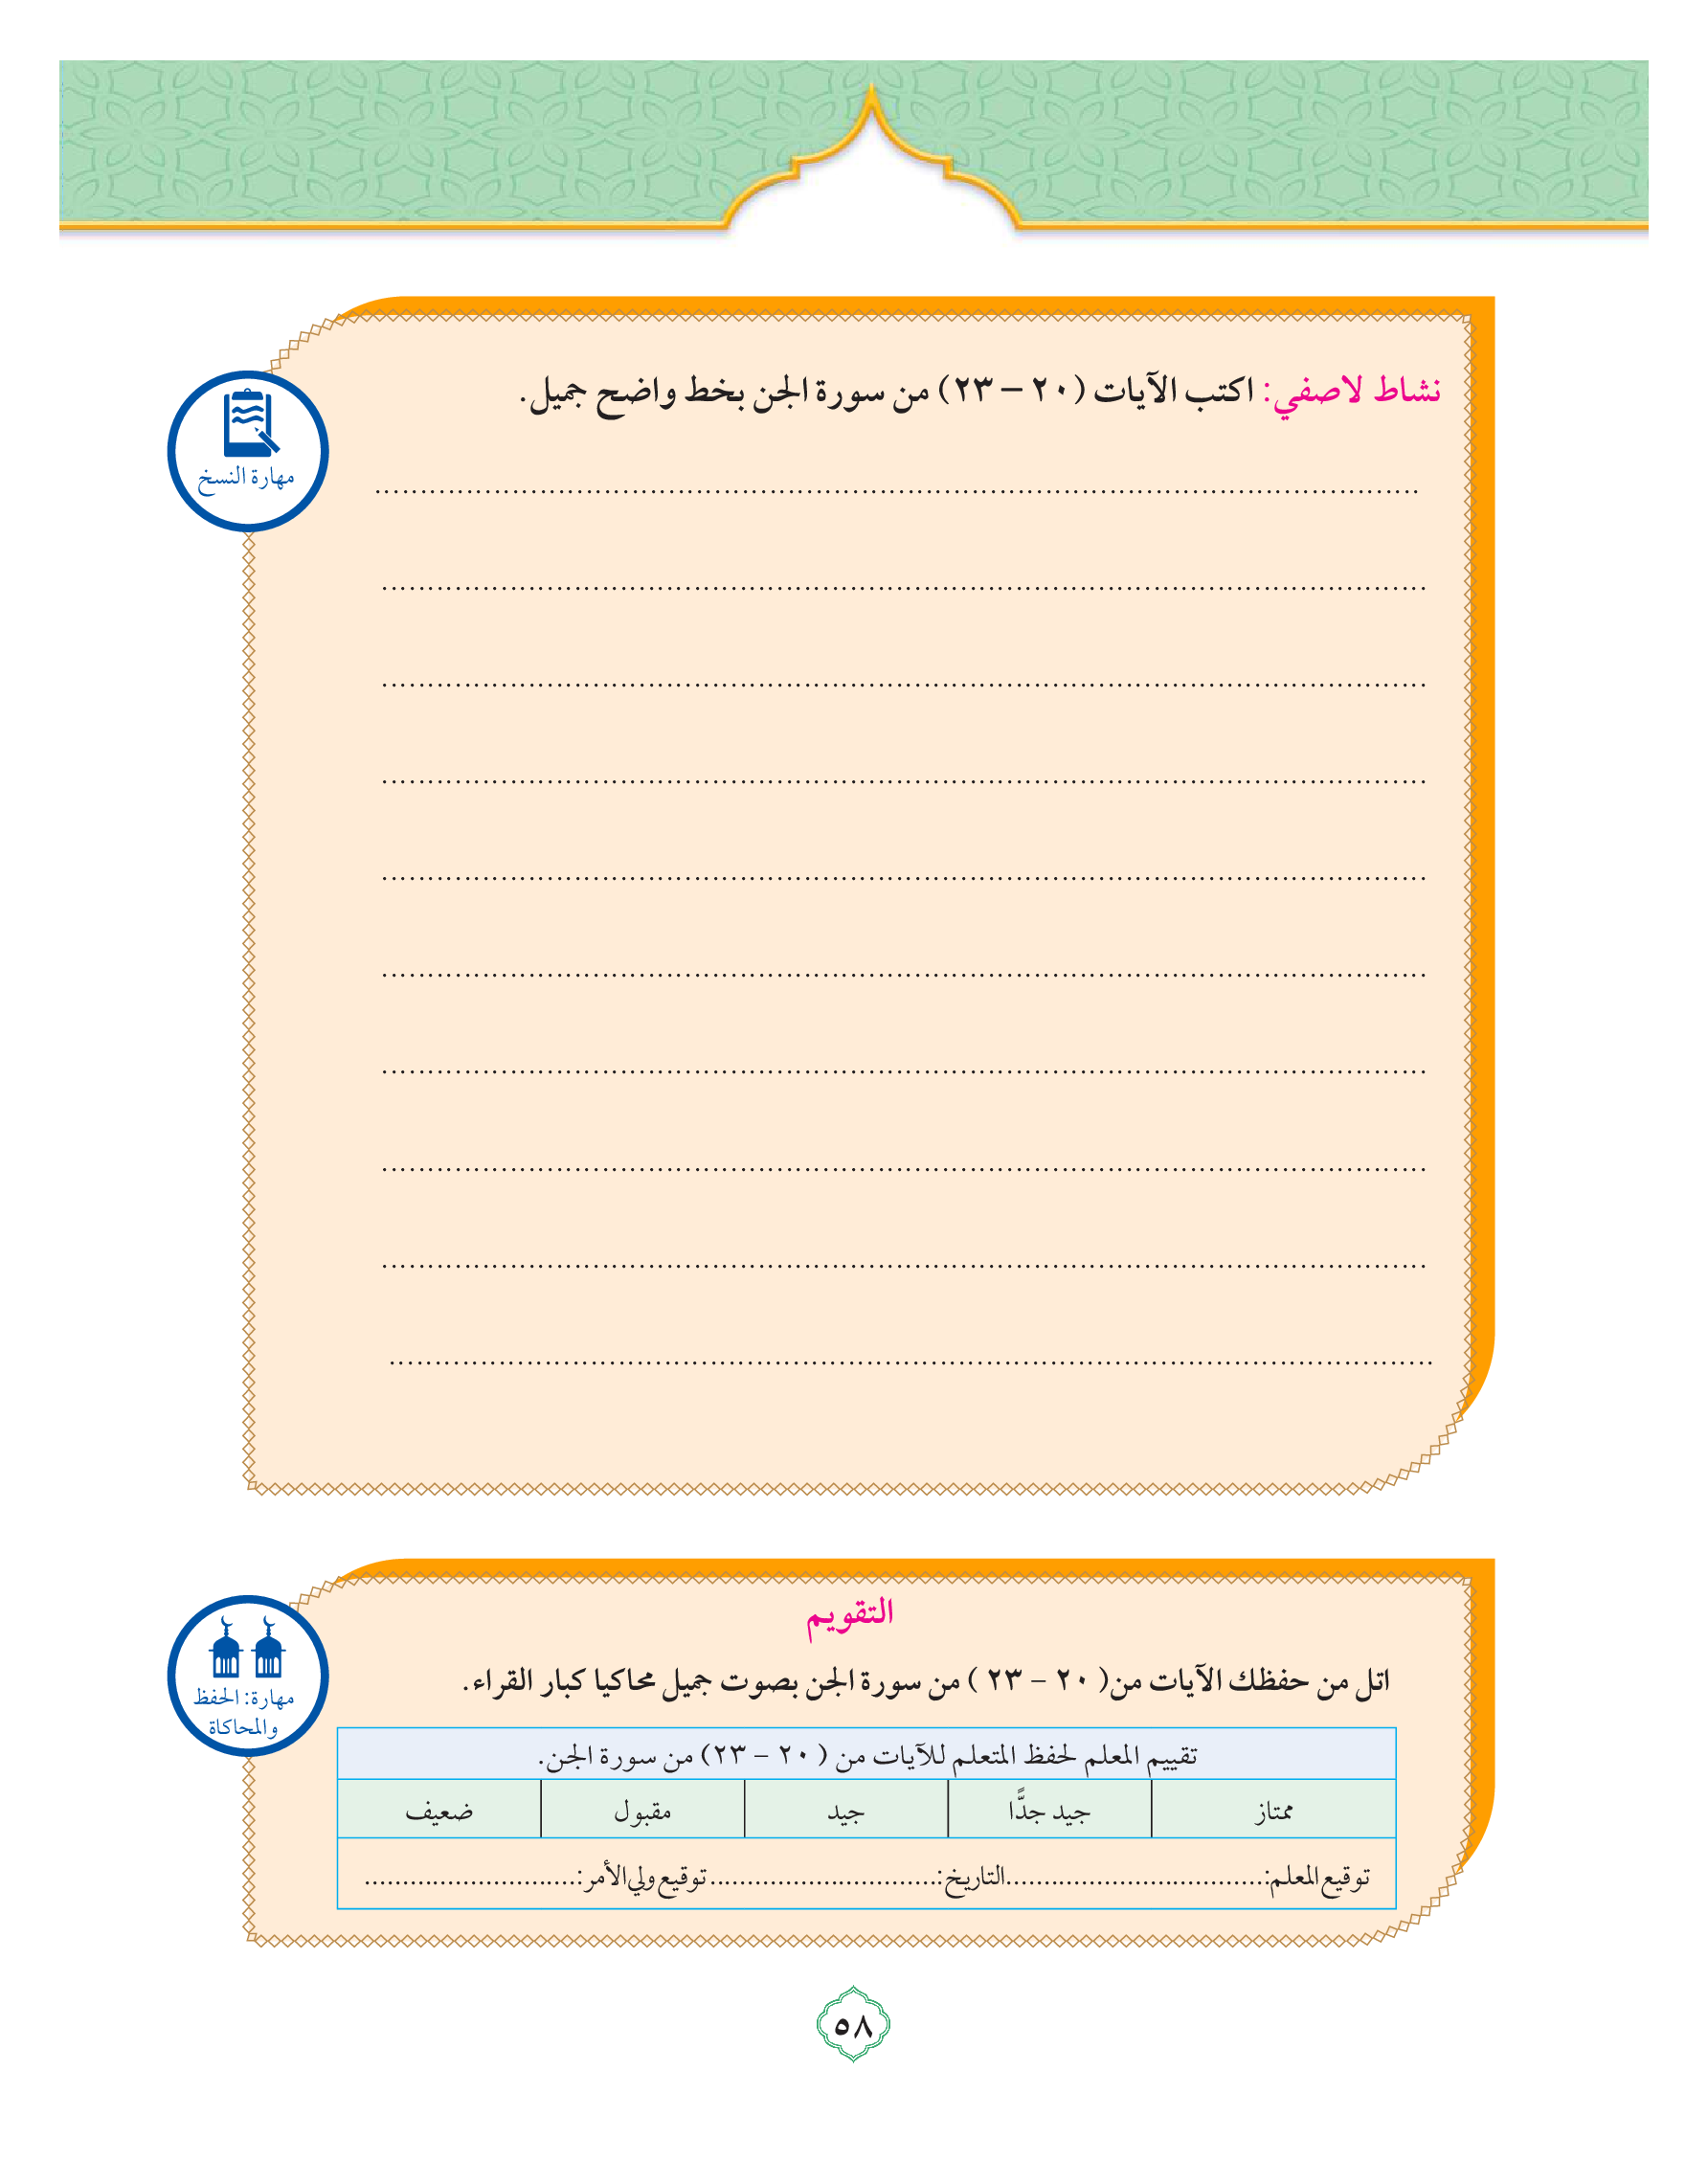 نشاط لاصفي: اكتب الآيات (٢٠ – ٢٣) من سورة الجن بخط واضح جميل.
مهارة النسخ
................................................................
................................................................
................................................................
................................................................
................................................................
................................................................
................................................................
................................................................
................................................................
................................................................
التقويم
اتل من حفظك الآيات من( ٢٠ - ٢٣ ) من سورة الجن بصوت جميل محاكيا كبار القراء.
مهارة: الحفظ
والمحاكاة
تقييم المعلم لحفظ المتعلم للآيات من ( ٢٠ - ٢٣) من سورة الجن.
ممتاز جيد جدًّا جيد مقبول ضعيف
توقيع المعلم:..................................التاريخ:..............................توقيع ولي الأمر:............................
٥٨